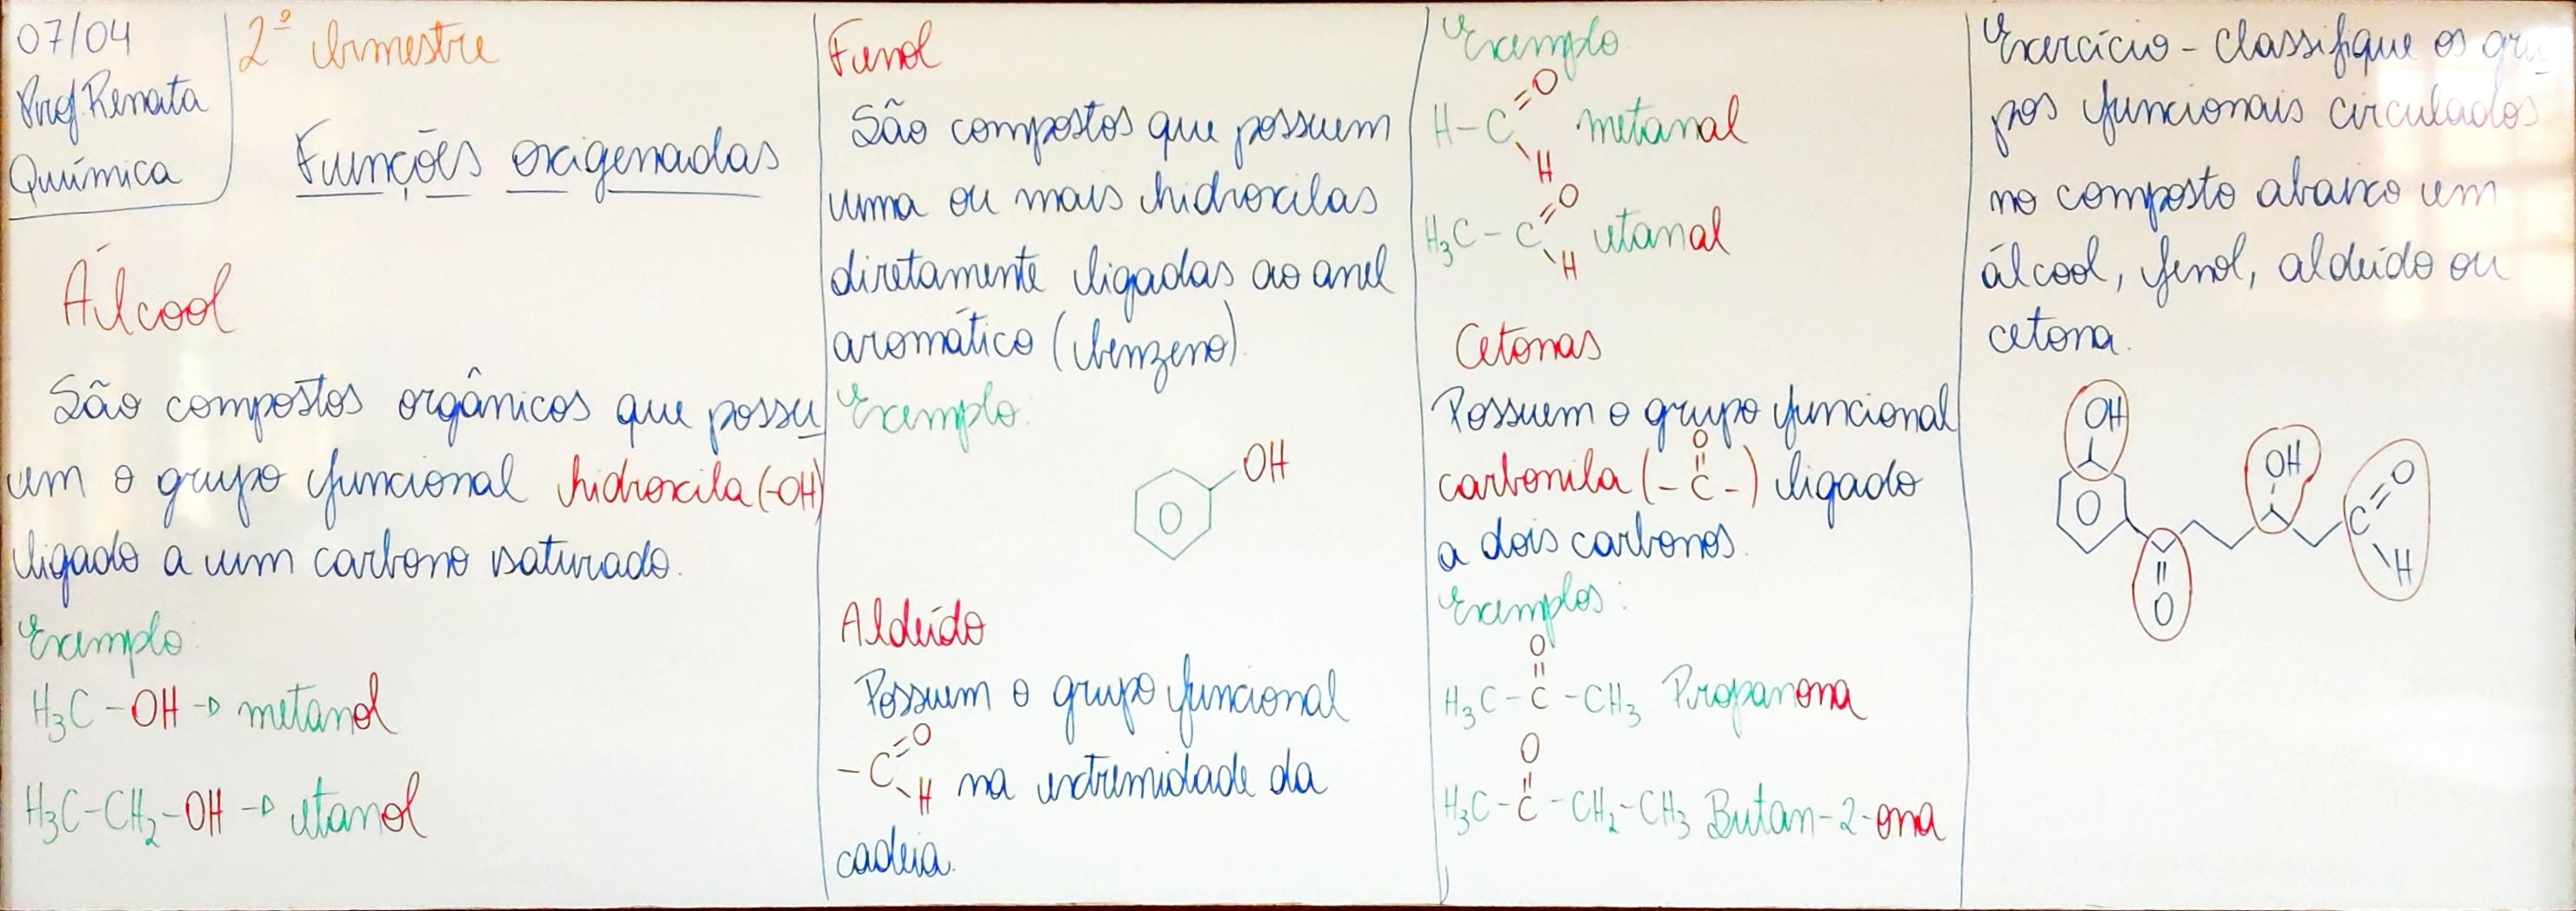 07/04
Prof. Renata
Química
2º bimestre
Funções oxigenadas
Álcool
São compostos orgânicos que possu
em o grupo funcional hidroxila (-OH)
ligado a um carbono saturado.
Exemplo:
H₃C-OH → metanol
H₃C-CH₂-OH → etanol
Fenol
São compostos que possuem
uma ou mais hidroxilas
diretamente ligadas ao anel
aromático (benzeno).
Exemplo:
OH
Aldeído
Possuem o grupo funcional
O
-C=
H na extremidade da
cadeia.
Exemplo
O
H-C= metanal
H
O
H₃C-C= etanal
H
Cetonas
Possuem o grupo funcional
O
carbonila (-C-) ligado
a dois carbonos.
Exemplos:
O
H₃C-C-CH₃ Propanona
O
H₃C-C-CH₂-CH₃ Butan-2-ona
Exercício - Classifique os gru
pos funcionais circulados
no composto abaixo em
álcool, fenol, aldeído ou
cetona.
OH
OH
C=O
H
O